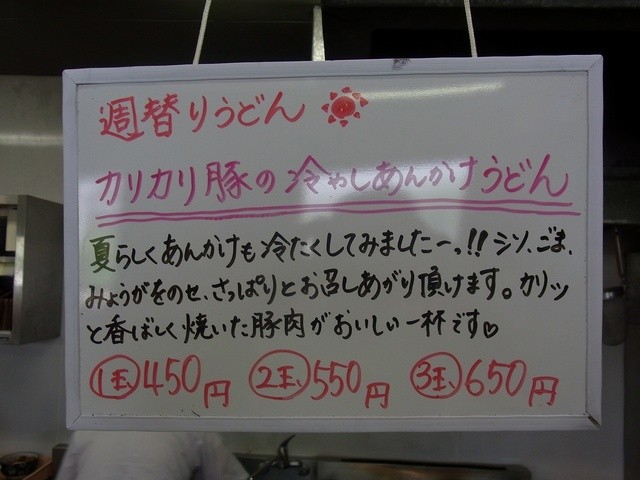 週替りうどん
カリカリ豚の冷やしあんかけうどん
夏らしくあんかけも冷たくしてみましたーっ!!シソ、ごま、
みょうがをのせ、さっぱりとお召しあがり頂けます。カリッ
と香ばしく焼いた豚肉がおいしい一杯です♡
1玉450円 2玉550円 3玉650円